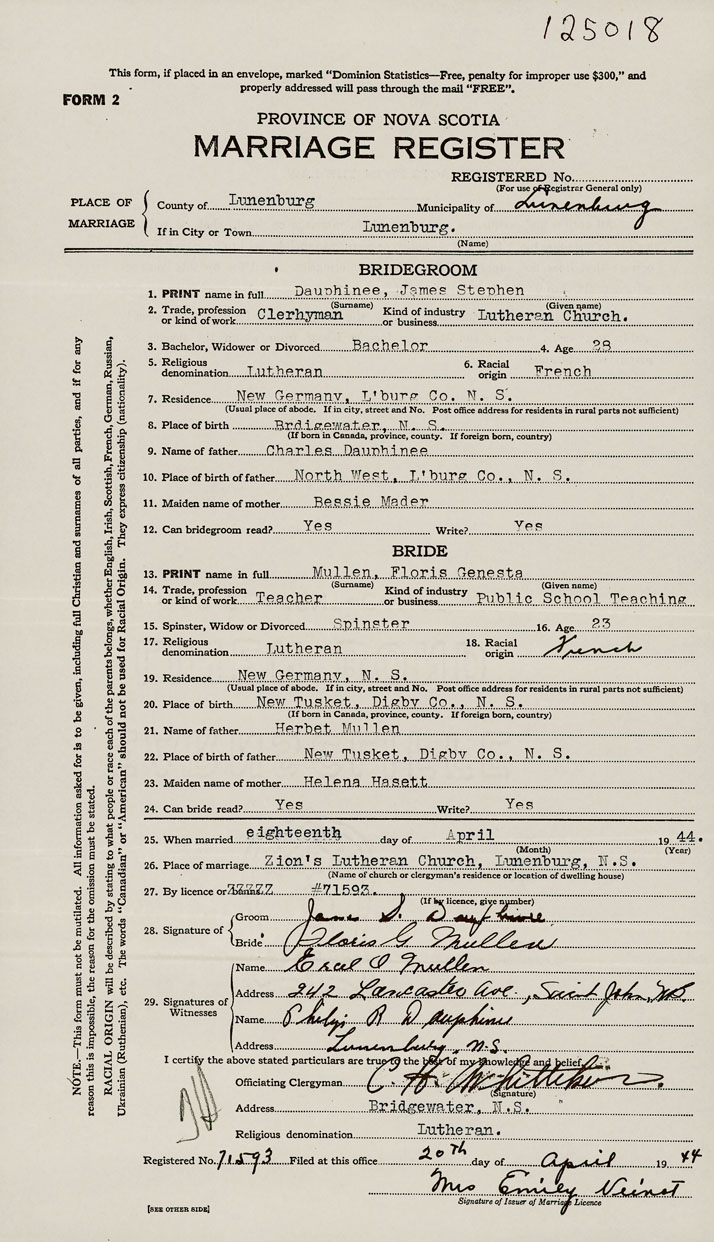 125018
This form, if placed in an envelope, marked “Dominion Statistics—Free, penalty for improper use $300,” and
properly addressed will pass through the mail “FREE”.
FORM 2
PROVINCE OF NOVA SCOTIA
MARRIAGE REGISTER
REGISTERED No.
(For use of Registrar General only)
PLACE OF MARRIAGE
County of Lunenburg Municipality of Lunenburg
If in City or Town Lunenburg.
(Name)
BRIDEGROOM
1. PRINT name in full Dauphinee, James Stephen
(Surname) (Given name)
2. Trade, profession or kind of work Clerhyman Kind of industry or business Lutheran Church.
3. Bachelor, Widower or Divorced Bachelor 4. Age 28
5. Religious denomination Lutheran 6. Racial origin French
7. Residence New Germany, L'burg Co. N. S.
(Usual place of abode. If in city, street and No. Post office address for residents in rural parts not sufficient)
8. Place of birth Brdigewater, N. S.
(If born in Canada, province, county. If foreign born, country)
9. Name of father Charles Dauphinee
10. Place of birth of father North West, L'burg Co., N. S.
11. Maiden name of mother Bessie Mader
12. Can bridegroom read? Yes Write? Yes
BRIDE
13. PRINT name in full Mullen, Floris Genesta
(Surname) (Given name)
14. Trade, profession or kind of work Teacher Kind of industry or business Public School Teaching
15. Spinster, Widow or Divorced Spinster 16. Age 23
17. Religious denomination Lutheran 18. Racial origin French
19. Residence New Germany, N. S.
(Usual place of abode. If in city, street and No. Post office address for residents in rural parts not sufficient)
20. Place of birth New Tusket, Digby Co., N. S.
(If born in Canada, province, county. If foreign born, country)
21. Name of father Herbet Mullen
22. Place of birth of father New Tusket, Digby Co., N. S.
23. Maiden name of mother Helena Hasett
24. Can bride read? Yes Write? Yes
25. When married eighteenth day of April 1944.
(Month) (Year)
26. Place of marriage Zion's Lutheran Church, Lunenburg, N.S.
(Name of church or clergyman's residence or location of dwelling house)
27. By licence or #71593.
(If by licence, give number)
28. Signature of
Groom James S. Dauphinee
Bride Floris G Mullen
29. Signatures of Witnesses
Name Mullen
Address 242 Lancaster Ave, Saint John, NB
Name Philip R Dauphinee
Address Lunenburg, N.S.
I certify the above stated particulars are true to the best of my knowledge and belief.
Officiating Clergyman
(Signature)
Address Bridgewater, N.S.
Religious denomination Lutheran.
Registered No. 71593 Filed at this office 20th day of April 1944
Mrs Emily
Signature of Issuer of Marriage Licence
[SEE OTHER SIDE]
NOTE.—This form must not be mutilated. All information asked for is to be given, including full Christian and surnames of all parties, and if for any
reason this is impossible, the reason for the omission must be stated.
RACIAL ORIGIN will be described by stating to what people or race each of the parents belongs, whether English, Irish, Scottish, French, German, Russian,
Ukrainian (Ruthenian), etc. The words “Canadian” or “American” should not be used for Racial Origin. They express citizenship (nationality).